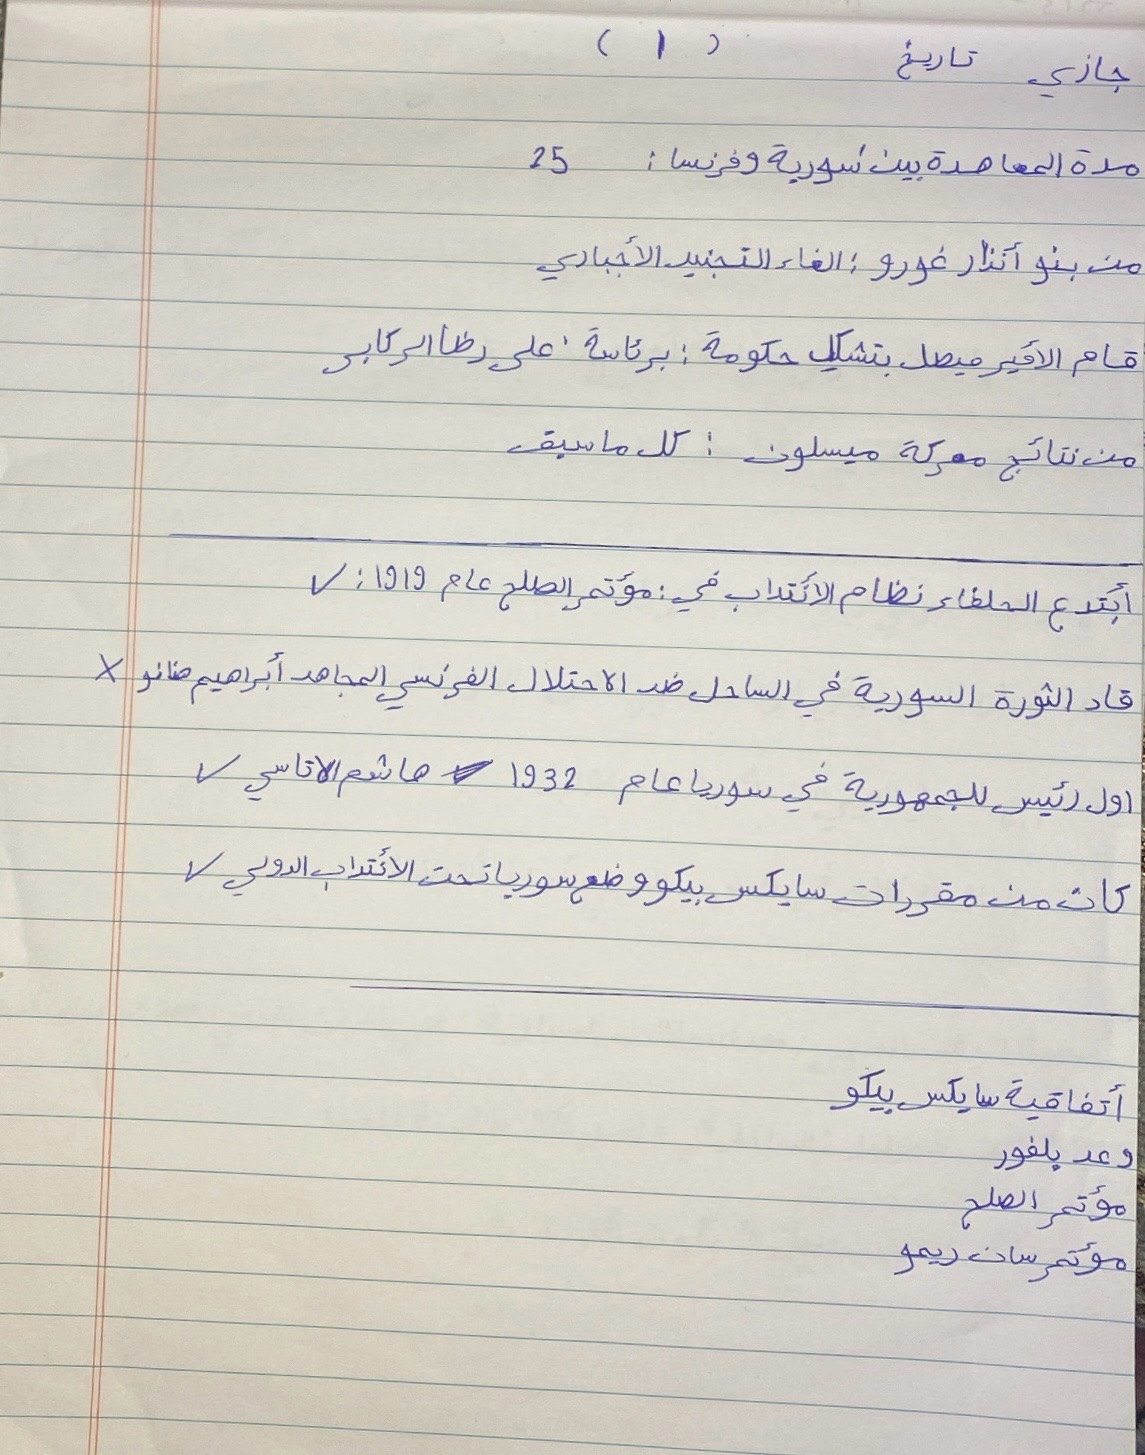 ( ١ )
جازي تاريخ
مدة المعاهدة بين سورية وفرنسا : 25
من بنو أنذار غورو : الغاء التجنيد الأجباري
قام الأمير فيصل بتشكيل حكومة : برئاسة علي رظا الركابي
من نتائج معركة ميسلون : كل ما سبق
أبتدع الحلفاء نظام الأنتداب في : مؤتمر الصلح عام ١٩١٩ : ✓
قاد الثورة السورية في الساحل ضد الاحتلال الفرنسي المجاهد أبراهيم هنانو X
اول رئيس للجمهورية في سوريا عام 1932 هاشم الاتاسي ✓
كان من مقررات سايكس بيكو وضع سوريا تحت الأنتداب الدولي ✓
أتفاقية سايكس بيكو
وعد بلفور
مؤتمر الصلح
مؤتمر سان ريمو